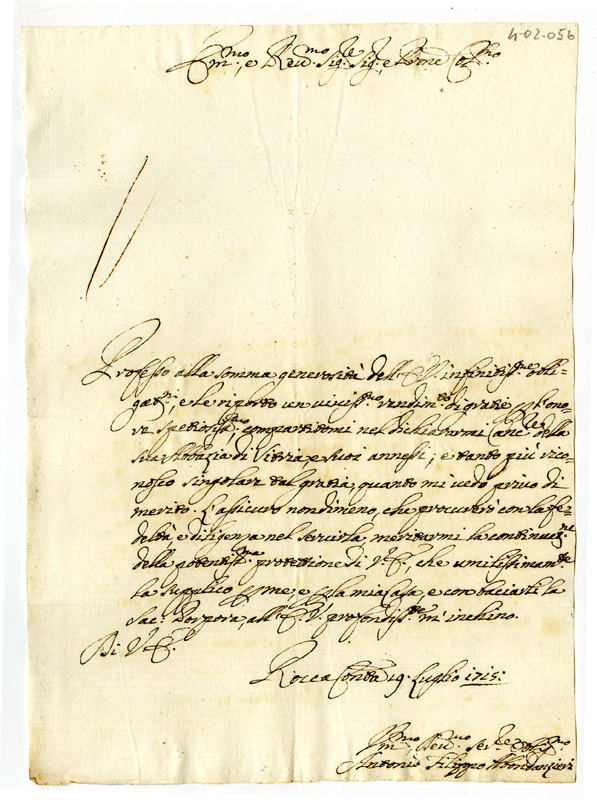 4-02-056
Em.mo, e Reu.mo Sig.re Sig.re, e Prone Col.mo
Professo alla somma generosità dell'E.V. infinitiss.me obli-
gat.ni, e le riporto un viuiss.mo rendim.to di gratie p. l'ono-
re spetiosiss.mo, compartitomi nel dichiararmi Canc.re della
sua Abbazia di Vitria, e suoi annessi; e tanto più rico-
nosco singolare tal gratia, quanto mi uedo priuo di
merito. L'assicuro nondimeno, che procurerò con la fe-
deltà, e diligenza nel seruirla, meritarmi la continuaz.ne
della potentiss.ma protettione di V.E., che umilissimam.te
la supplico p. me, e p. la mia Casa, e con baciarle la
Sac. Porpora, all'E.V. profondiss.te m'inchino.
Di V.E.
Rocca Contda 19. Luglio 1715:
Um.mo Deu.mo Ser.re Obl.mo
Antonio Filippo Abbondanzieri